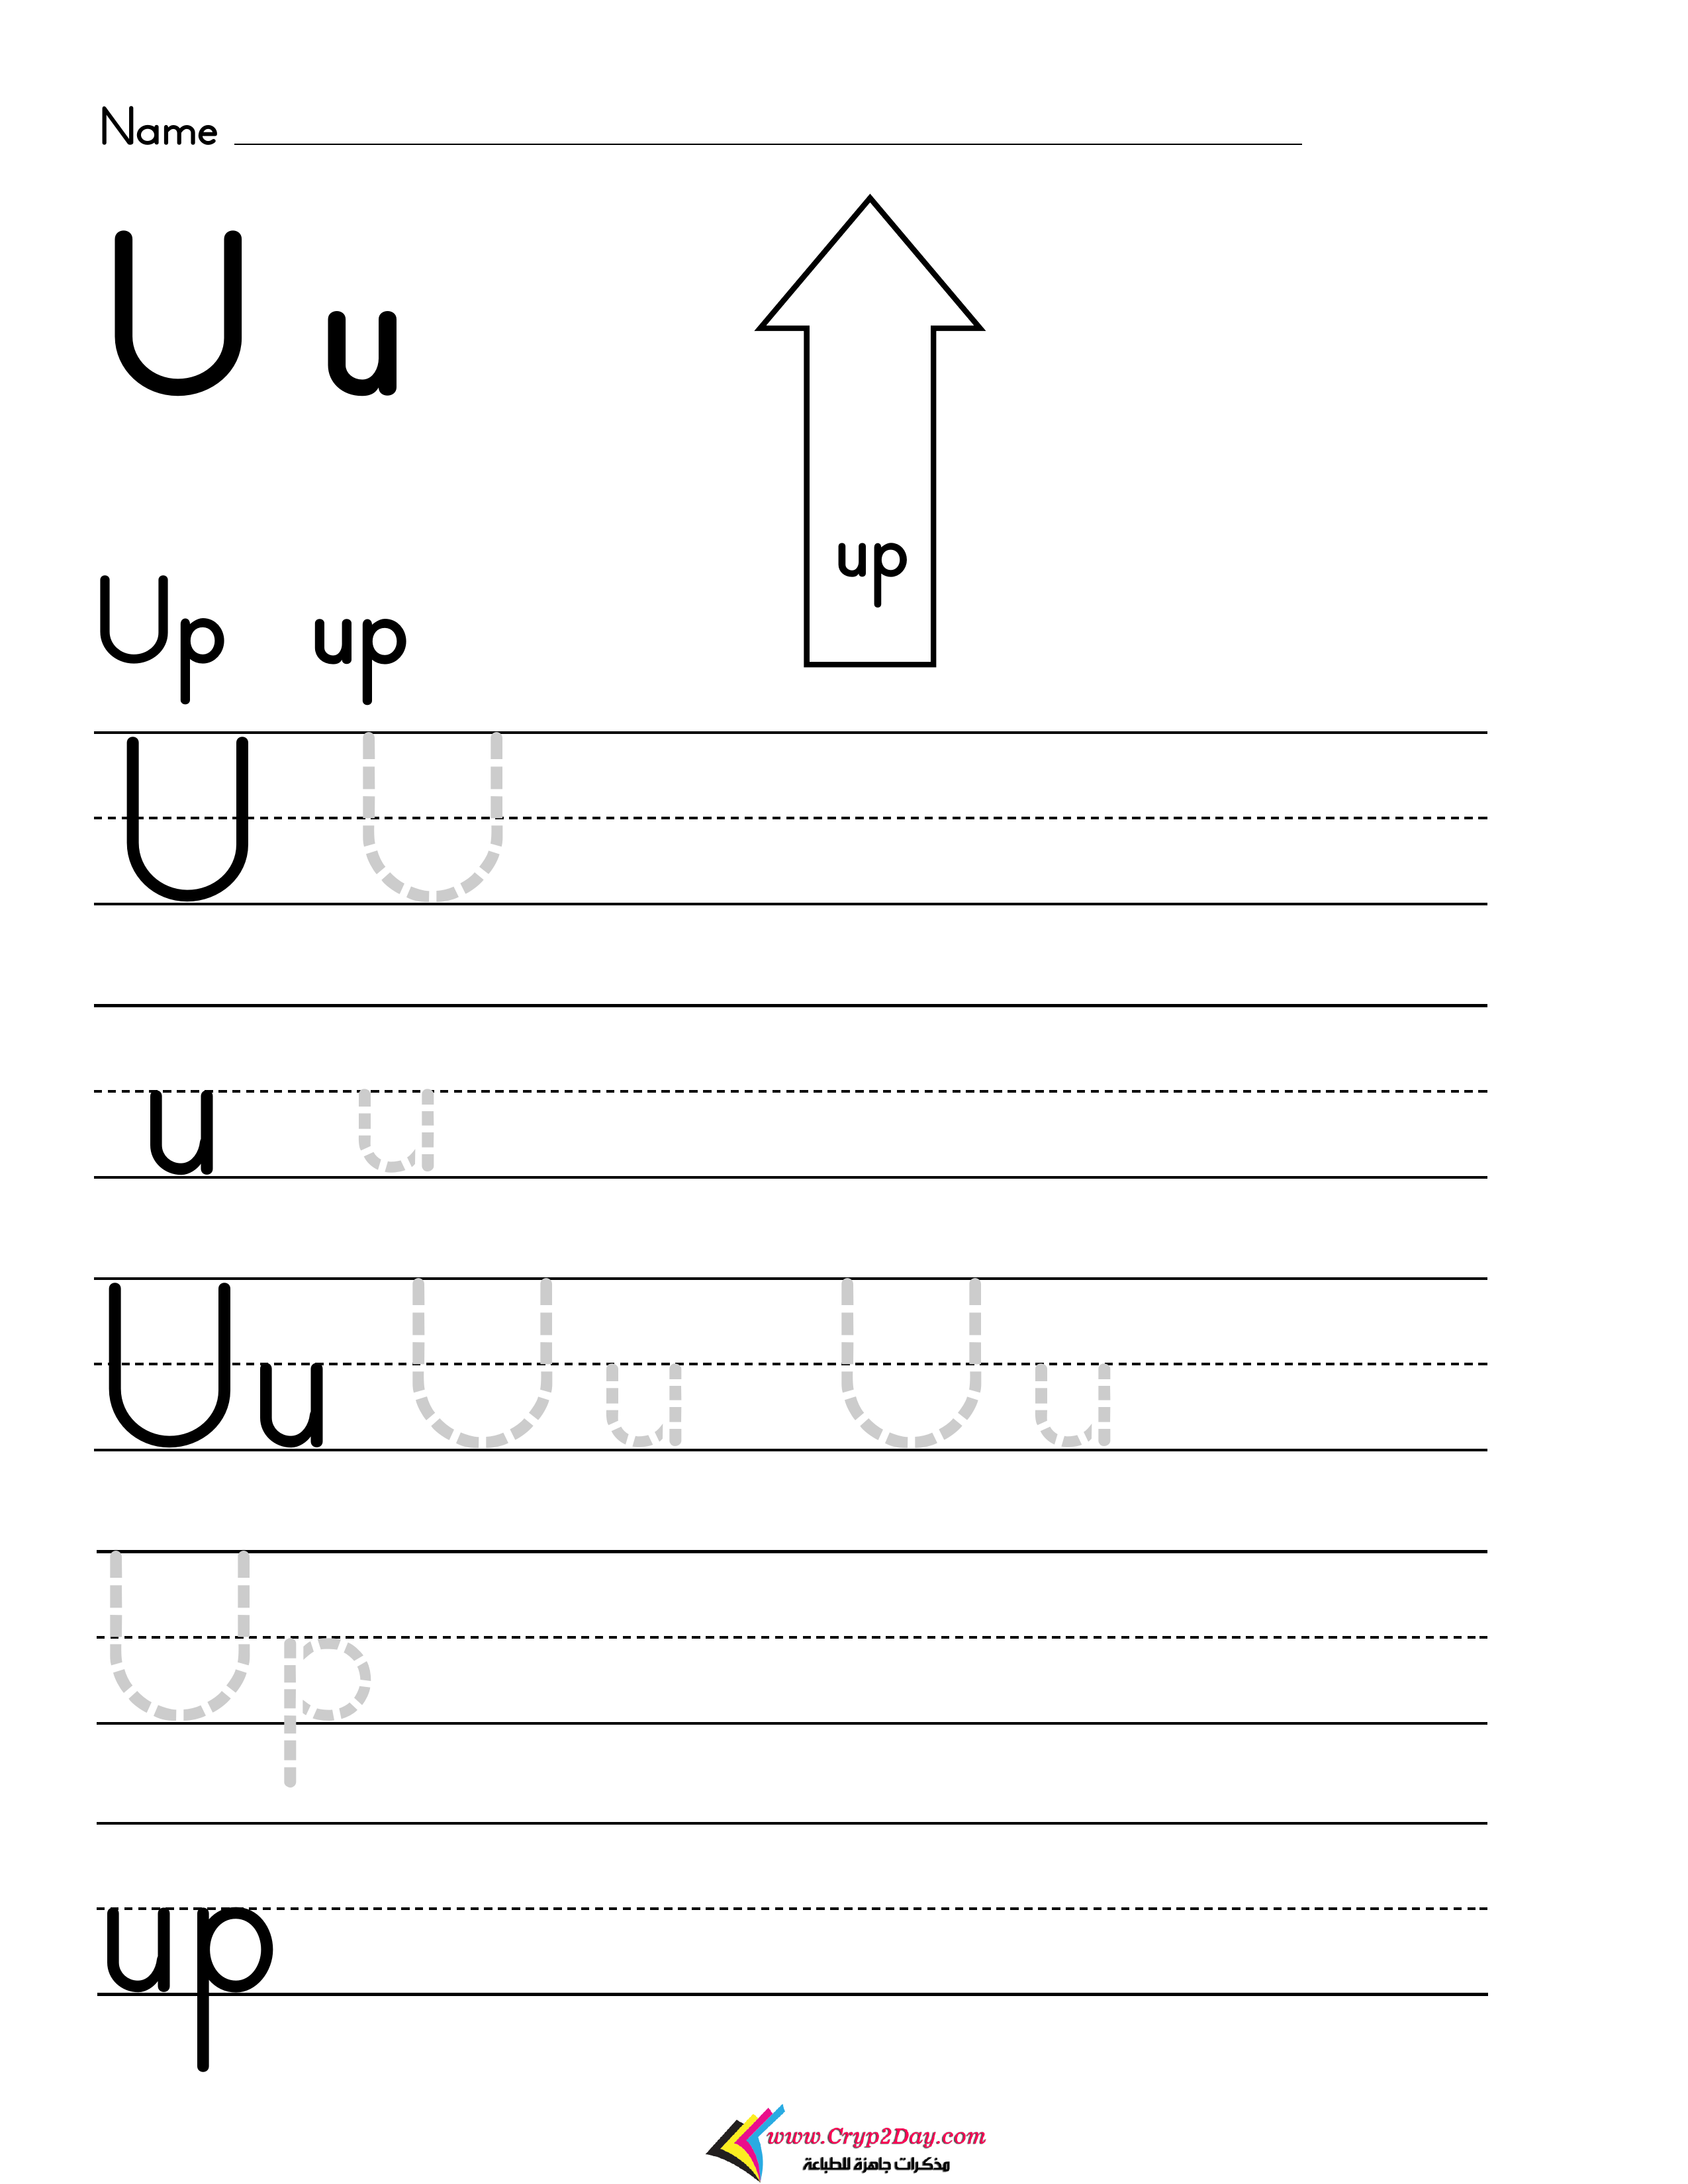 Name
U u
up
Up up
U U
u u
Uu Uu Uu
Up
up
www.Cryp2Day.com
مذكرات جاهزة للطباعة